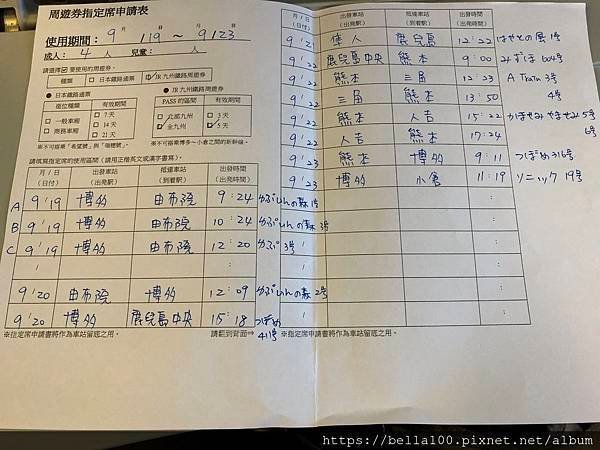 周遊券指定席申請表
月 日 月 日
使用期間： 9 / 19 ～ 9 / 23
成人： 4 人 兒童： 人
請選擇☑要使用的周遊券。
種類 □ 日本鐵路通票 ☑JR 九州鐵路周遊券
● 日本鐵路通票 ● JR 九州鐵路周遊券
座位種類 有效期間 PASS 的區間 有效期間
□ 一般車廂 □ 商務車廂
□ 7 天 □ 14 天 □ 21 天
□ 北部九州 ☑ 全九州
□ 3 天 ☑ 5 天
※不可搭乘「希望號」與「瑞穗號」。 ※不可搭乘博多～小倉之間的新幹線。
請填寫指定席的使用區間（請用正楷英文或漢字書寫）。
月 / 日 （日付） 出發車站 （出発駅） 抵達車站 （到着駅） 出發時間 （出発時間）
A 9 / 19 博多 由布院 9 : 24 ゆふいんの森1号
B 9 / 19 博多 由布院 10 : 24 ゆふいんの森3号
C 9 / 19 博多 由布院 12 : 20 ゆふ3号
9 / 20 由布院 博多 12 : 09 ゆふいんの森2号
9 / 20 博多 鹿兒島中央 15 : 18 つばめ
411号
※指定席申請書將作為車站留底之用。 請翻到背面⇒
月 / 日 （日付） 出發車站 （出発駅） 抵達車站 （到着駅） 出發時間 （出発時間）
9 / 21 隼人 鹿兒島 12 : 22 はやとの風1号
9 / 22 鹿兒島中央 熊本 9 : 00 みずほ604号
9 / 22 熊本 三角 12 : 23 A Train 3号
9 / 22 三角 熊本 13 : 50 4号
9 / 22 熊本 人吉 15 : 22 かわせみ やませみ 5号
9 / 22 人吉 熊本 17 : 24 6号
9 / 23 熊本 博多 9 : 11 つばめ316号
9 / 23 博多 小倉 11 : 19 ソニック 19号
※指定席申請書將作為車站留底之用。
https://bella100.pixnet.net/album